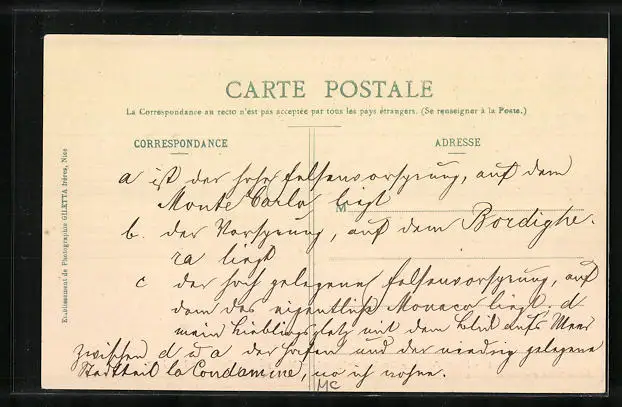 CARTE POSTALE
La Correspondance au recto n'est pas acceptée par tous les pays étrangers. (Se renseigner à la Poste.)
CORRESPONDANCE
ADRESSE
Etablissement de Photographie GILETTA frères, Nice
M
a ist der hohe Felsenvorsprung, auf dem
Monte Carlo liegt
b. der Vorsprung, auf dem Bordighe-
ra liegt
c der hoch gelegene Felsenvorsprung, auf
dem das eigentliche Monaco liegt. d
mein Lieblingsplatz mit dem Blick aufs Meer
zwischen d u a der Hafen und der niedrig gelegene
Stadtteil la Condamine, wo ich wohne.
MC